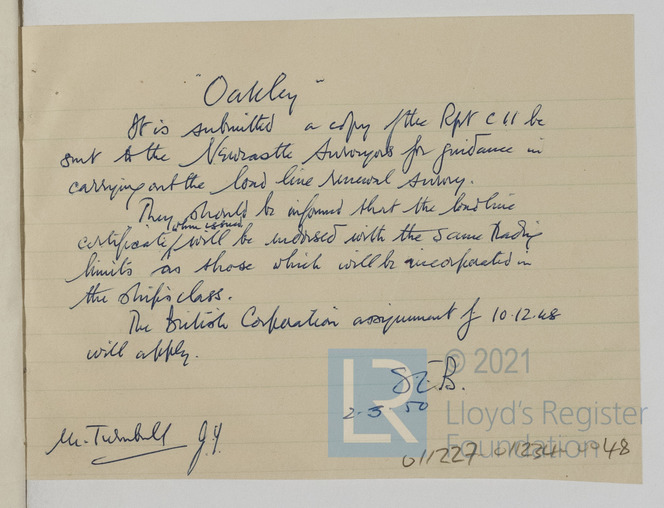 "Oakley"
It is submitted a copy of the Rpt C 11 be
sent to the Newcastle Surveyors for guidance in
carrying out the load line renewal survey.
They should be informed that the loadline
when issued
certificate will be endorsed with the same trading
limits as those which will be incorporated in
the ship's class.
The British Corporation assignment of 10.12.48
will apply.
B.
2-3-50
Mr. Turnbull
LR
© 2021
Lloyd's Register
Foundation
011227-011234-0048